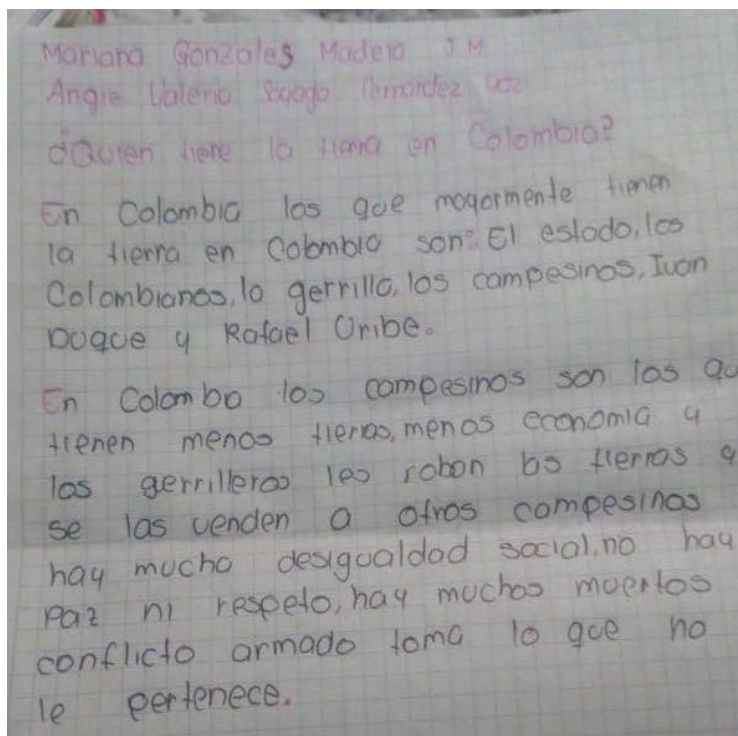 Mariana Gonzales Madero J M
Angie Valeria Sayago 902
¿Quien tiene la tierra en Colombia?
En Colombia los que mayormente tienen
la tierra en Colombia son: El estado, los
Colombianos, la gerrilla, los campesinos, Ivan
Duque y Rafael Uribe.
En Colombia los campesinos son los qu
tienen menos tierras, menos economia y
los gerrilleros les roban las tierras y
se las venden a otros campesinos
hay mucha desigualdad social, no hay
paz ni respeto, hay muchos muertos
conflicto armado toma lo que no
le pertenece.